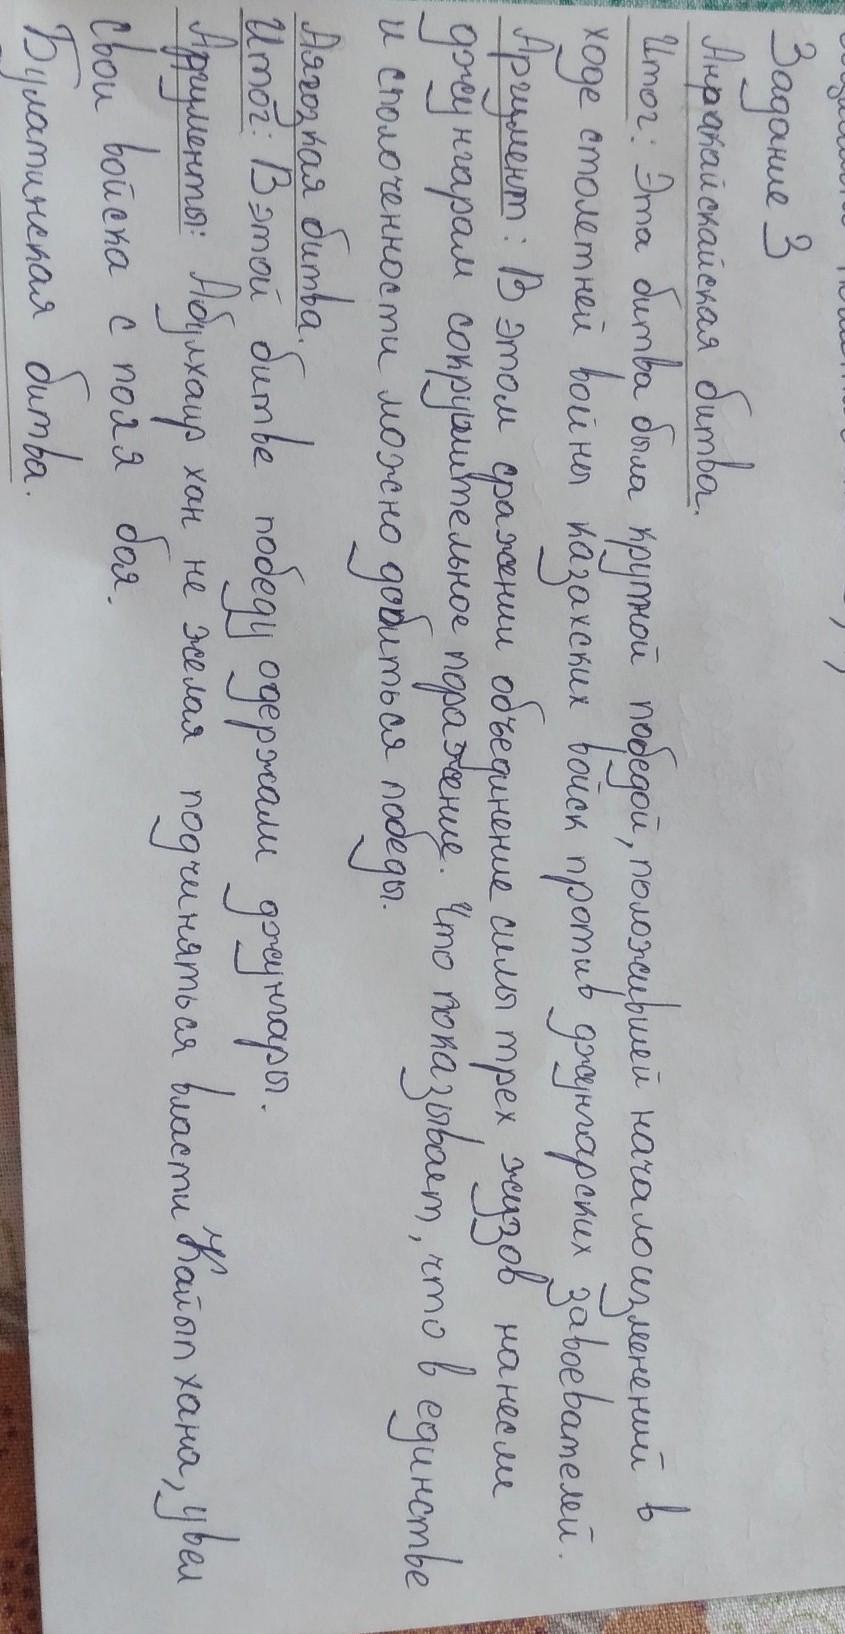 Задание 3
Анракайскайская битва.
Итог: Эта битва была крупной победой, положившей начало изменений в
ходе столетней войны казахских войск против джунгарских завоевателей.
Аргумент: В этом сражении объединение силы трех жузов нанесли
джунгарам сокрушительное поражение. Что показывает, что в единстве
и сполоченности можно добиться победы.
Аягозкая битва.
Итог: В этой битве победу одержали джунгары.
Аргументы: Абулхаир хан не желая подчиняться власти Кайып хана, увел
свои войска с поля боя.
Булатинская битва.